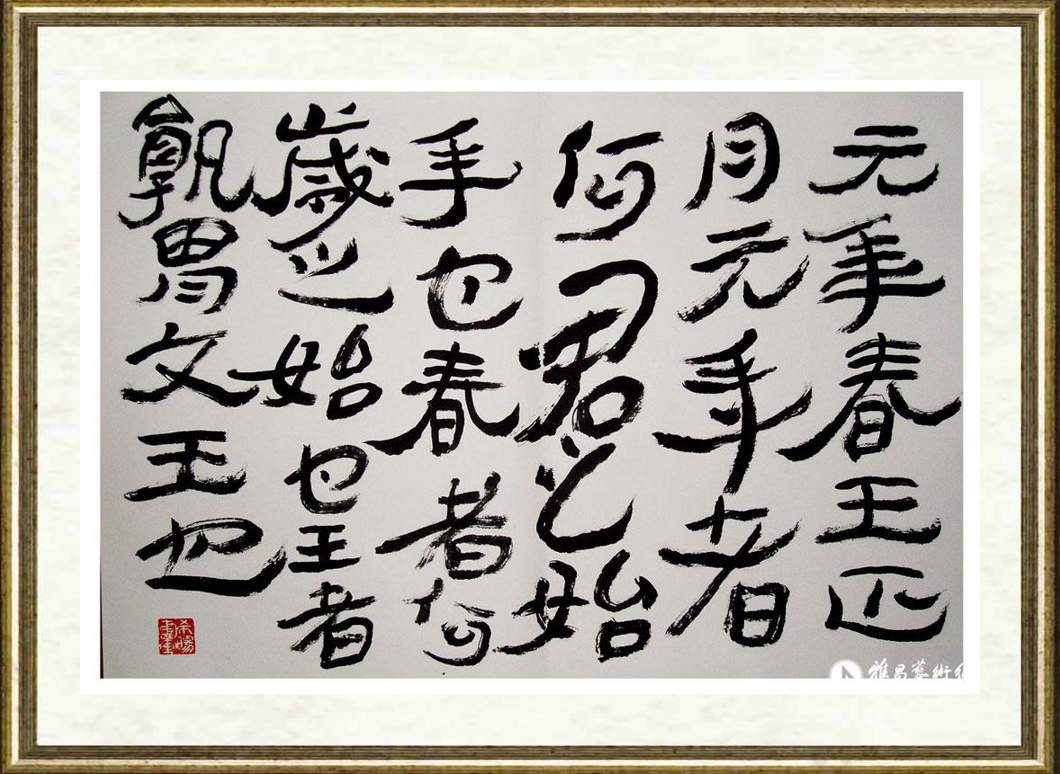 元年春王正
月元年者
何君之始
年也春者何
歲之始也王者
孰胃文王也
雅昌藝術